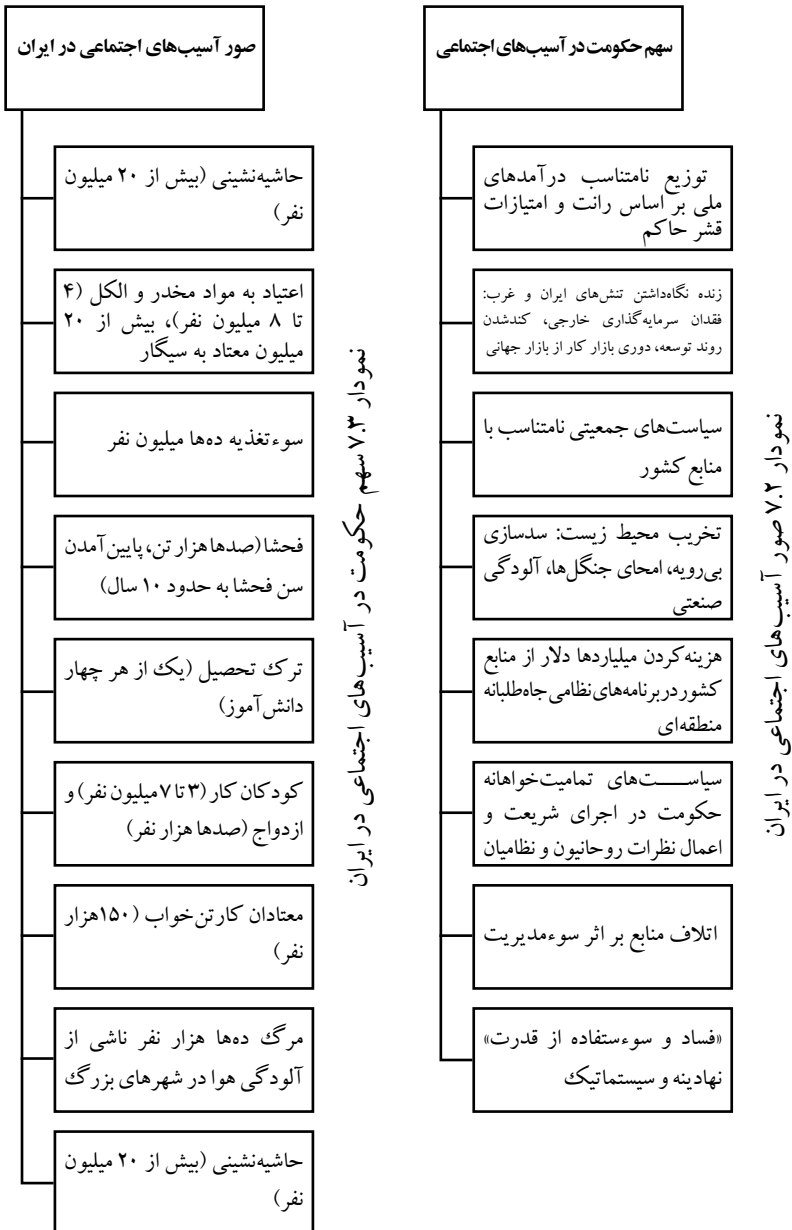 سهم حکومت در آسیب‌های اجتماعی
توزیع نامتناسب درآمدهای
ملی بر اساس رانت و امتیازات
قشر حاکم
زنده نگاه‌داشتن تنش‌های ایران و غرب:
فقدان سرمایه‌گذاری خارجی، کندشدن
روند توسعه، دوری بازار کار از بازار جهانی
سیاست‌های جمعیتی نامتناسب با
منابع کشور
تخریب محیط زیست: سدسازی
بی‌رویه، امحای جنگل‌ها، آلودگی
صنعتی
هزینه‌کردن میلیاردها دلار از منابع
کشور در برنامه‌های نظامی جاه‌طلبانه
منطقه‌ای
سیاست‌های تمامیت‌خواهانه
حکومت در اجرای شریعت و
اعمال نظرات روحانیون و نظامیان
اتلاف منابع بر اثر سوءمدیریت
«فساد و سوءستفاده از قدرت»
نهادینه و سیستماتیک
نمودار ۷.۲ صور آسیب‌های اجتماعی در ایران
صور آسیب‌های اجتماعی در ایران
حاشیه‌نشینی (بیش از ۲۰ میلیون
نفر)
اعتیاد به مواد مخدر و الکل (۴
تا ۸ میلیون نفر)، بیش از ۲۰
میلیون معتاد به سیگار
سوءتغذیه ده‌ها میلیون نفر
فحشا (صدها هزار تن، پایین‌آمدن
سن فحشا به حدود ۱۰ سال)
ترک تحصیل (یک از هر چهار
دانش‌آموز)
کودکان کار (۳ تا ۷ میلیون نفر) و
ازدواج (صدها هزار نفر)
معتادان کارتن‌خواب (۱۵۰هزار
نفر)
مرگ ده‌ها هزار نفر ناشی از
آلودگی هوا در شهرهای بزرگ
حاشیه‌نشینی (بیش از ۲۰ میلیون
نفر)
نمودار ۷.۳ سهم حکومت در آسیب‌های اجتماعی در ایران